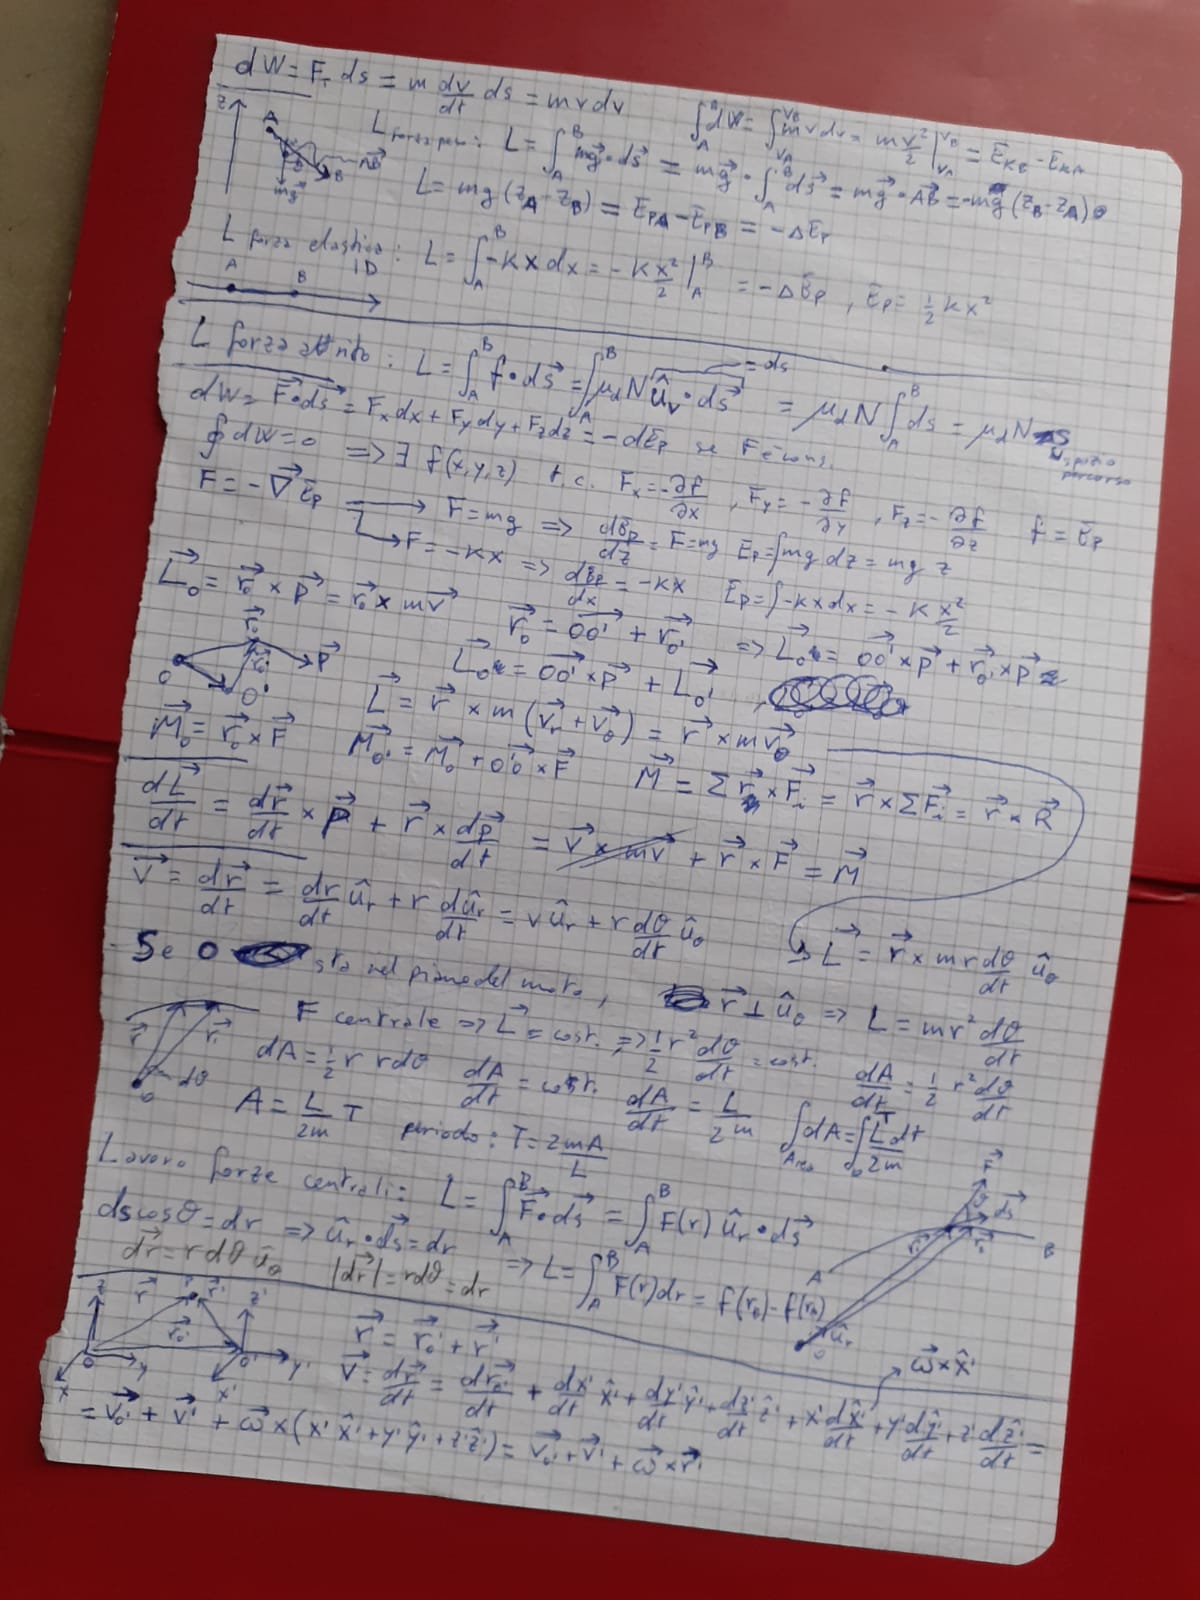 dW = F_T ds = m dv/dt ds = mv dv    ∫_A^B dW = ∫_{v_A}^{v_B} mv dv = m v²/2 |_{v_A}^{v_B} = E_{KB} - E_{KA}
z A B AB mg
L forza peso: L = ∫_A^B mg⃗ • ds⃗ = mg⃗ • ∫_A^B ds⃗ = mg⃗ • AB⃗ = -mg (z_B - z_A)
L = mg (z_A - z_B) = E_{PA} - E_{PB} = -ΔE_p
L forza elastica: 1D L = ∫_A^B -kx dx = -k x²/2 |_A^B = -ΔE_p , E_p = 1/2 kx²
A B
L forza attrito: L = ∫_A^B f • ds⃗ = ∫_A^B μ_d N û_v • ds⃗ = μ_d N ∫_A^B ds = μ_d N s
= ds
spazio percorso
dW = F⃗ • ds⃗ = F_x dx + F_y dy + F_z dz = -dE_p se F è cons.
∮ dW = 0 => ∃ f(x,y,z) t.c. F_x = -∂f/∂x , F_y = -∂f/∂y , F_z = -∂f/∂z f = E_p
F = -∇⃗ E_p → F = mg => dE_p/dz = F = mg E_p = ∫ mg dz = mg z
↳ F = -kx => dE_p/dx = -kx E_p = ∫ -kx dx = -k x²/2
L⃗_o = r⃗_o × p⃗ = r⃗_o × mv⃗
r⃗_o = OO'⃗ + r⃗_o' => L⃗_o = OO'⃗ × p⃗ + r⃗_o' × p⃗ =
O r⃗_o r⃗_o' p⃗ O'
L⃗_o = OO'⃗ × p⃗ + L⃗_o' ,
L⃗ = r⃗ × m (v⃗_r + v⃗_θ) = r⃗ × mv⃗_θ
M⃗_o = r⃗_o × F⃗ M⃗_o' = M⃗_o + O'O⃗ × F⃗ M⃗ = Σ r⃗ × F⃗_i = r⃗ × Σ F⃗_i = r⃗ × R⃗
dL⃗/dt = dr⃗/dt × p⃗ + r⃗ × dp⃗/dt = v⃗ × mv⃗ + r⃗ × F⃗ = M⃗
v⃗ = dr⃗/dt = dr/dt û_r + r dû_r/dt = v û_r + r dθ/dt û_θ
→ L⃗ = r⃗ × m r dθ/dt û_θ
Se O sta nel piano del moto, r⃗ ⊥ û_θ => L = mr² dθ/dt
F centrale => L⃗ = cost. => 1/2 r² dθ/dt = cost.
r⃗ r⃗ dθ O
dA = 1/2 r r dθ dA/dt = cost. dA/dt = L/2m dA/dt = 1/2 r² dθ/dt
A = L/2m T periodo: T = 2mA/L ∫_{Area} dA = ∫_0^T L/2m dt
Lavoro forze centrali: L = ∫_A^B F⃗ • ds⃗ = ∫_A^B F(r) û_r • ds⃗
ds cosθ = dr => û_r • ds⃗ = dr => L = ∫_A^B F(r) dr = f(r_B) - f(r_A)
dr⃗ = r dθ û_θ |dr⃗| = r dθ = dr
F⃗ θ ds⃗ A B O û_r
z x y O r⃗ r⃗_o' r⃗' z' x' y' O'
r⃗ = r⃗_o' + r⃗'
ω⃗ × x̂'
v⃗ = dr⃗/dt = dr⃗_o'/dt + dx'/dt x̂' + dy'/dt ŷ' + dz'/dt ẑ' + x' dx̂'/dt + y' dŷ'/dt + z' dẑ'/dt =
= v⃗_o' + v⃗' + ω⃗ × (x' x̂' + y' ŷ' + z' ẑ') = v⃗_o' + v⃗' + ω⃗ × r⃗'